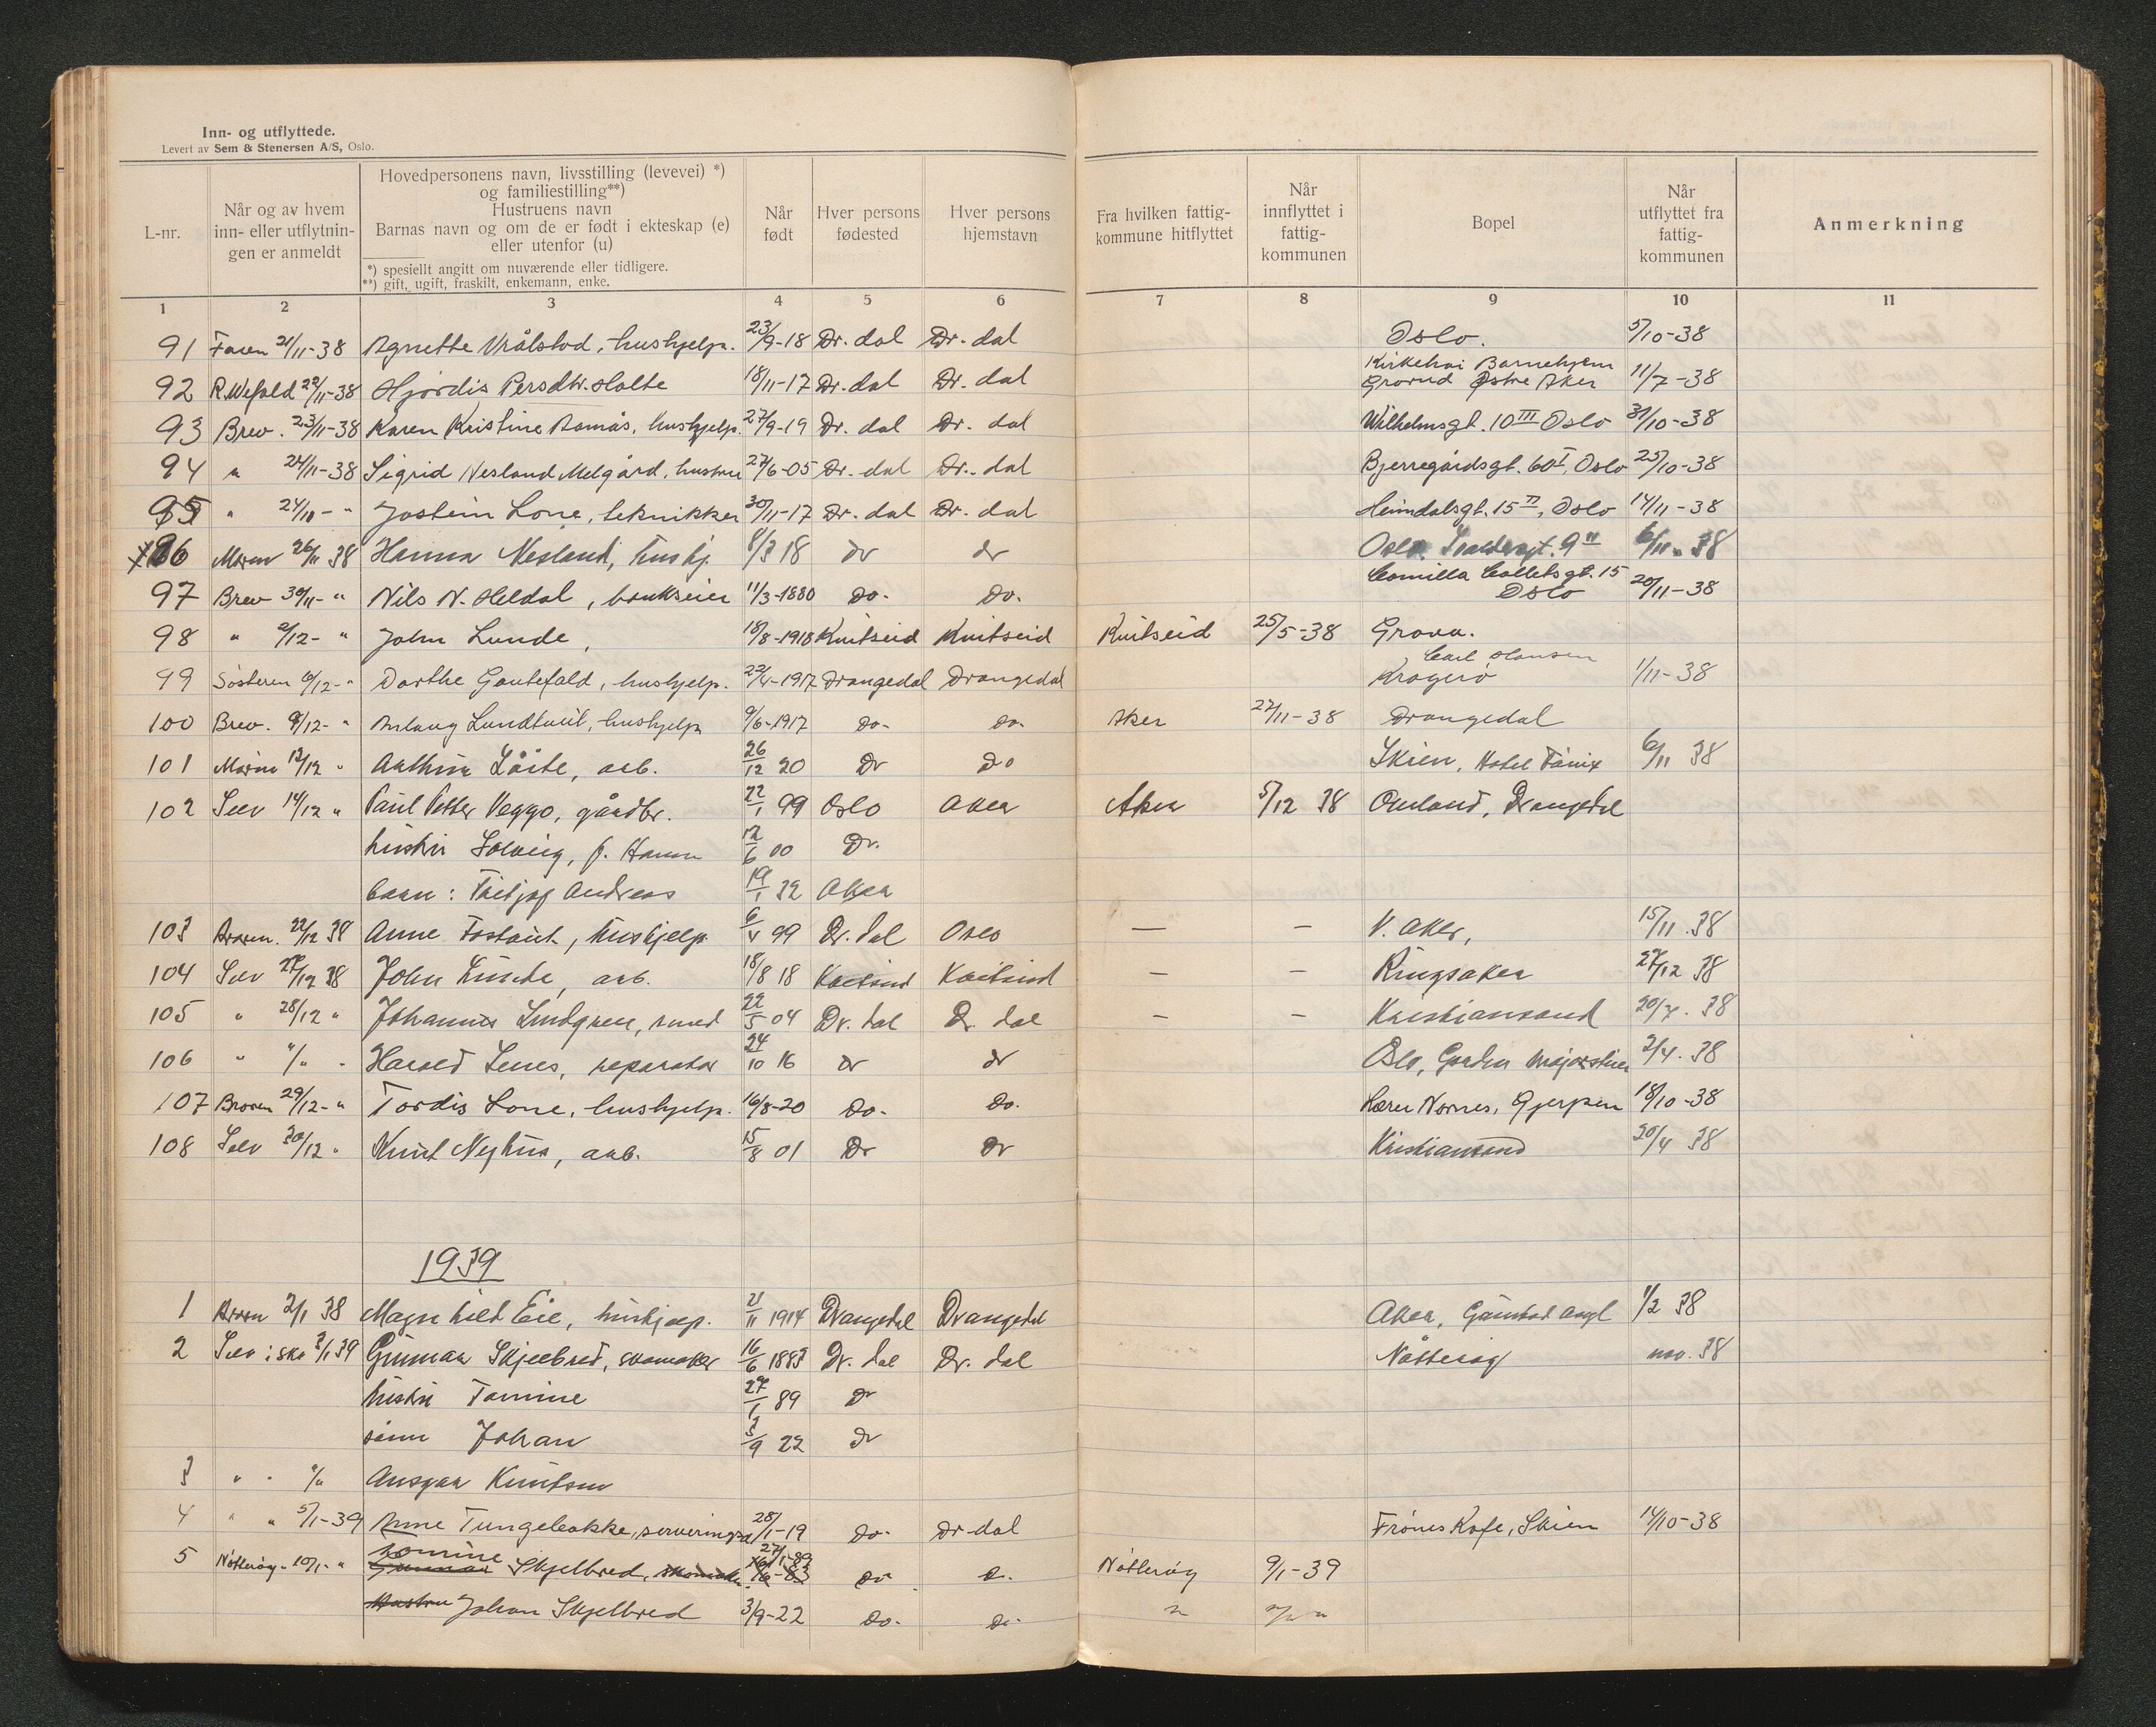 Inn- og utflyttede.
Levert av Sem & Stenersen A/S, Oslo.
L-nr.
Når og av hvem
inn- eller utflytnin-
gen er anmeldt
Hovedpersonens navn, livsstilling (levevei) *)
og familiestilling**)
Hustruens navn
Barnas navn og om de er født i ekteskap (e)
eller utenfor (u)
*) spesiellt angitt om nuværende eller tidligere.
**) gift, ugift, fraskilt, enkemann, enke.
Når
født
Hver persons
fødested
Hver persons
hjemstavn
Fra hvilken fattig-
kommune hitflyttet
Når
innflyttet i
fattig-
kommunen
Bopel
Når
utflyttet fra
fattig-
kommunen
Anmerkning
1 2 3 4 5 6 7 8 9 10 11
91 Faren 21/11-38 Agnethe Vrålstod, hushjelp. 23/9-18 Dr. dal Dr. dal Oslo. 5/10-38
92 R. Wefald 22/11-38 Hjördis Persdtr. Holte 18/11-17 Dr. dal Dr. dal Kirkehoi Barnehjem Grorud Østre Aker 11/7-38
93 Brev. 23/11-38 Karen Kristine Bamås, hushjelp. 27/9-19 Dr. dal Dr. dal Wilhelmsgt. 10 III Oslo 31/10-38
94 " 24/11-38 Sigrid Nesland Melgård, hustru 27/6-05 Dr. dal Dr. dal Bjerregårdsgt. 60 I, Oslo 25/10-38
95 " 24/10- " Jostein Lone, teknikker 30/11-17 Dr. dal Dr. dal Heimdalsgt. 15 II, Oslo 14/11-38
x96 Moren 26/11 38 Hanna Nesland, hushj. 8/3 18 Dr Dr Oslo 9 II 6/11. 38
97 Brev 30/11- " Nils N. Heldal, bankeier 11/3-1880 Do. Do. Camilla Colletsgt. 15 Oslo 20/11-38
98 " 2/12- " John Lunde, 18/8-1918 Kvitseid Kvitseid Kvitseid 25/5-38 Grova.
99 Søsteren 6/12- " Dorthe Gautefald, hushjelp. 23/4-1917 Drangedal Drangedal Carl Hansen Kragerö 1/11-38
100 Brev. 9/12- " Aslaug Lundtveit, hushjelp 9/6-1917 Do. Do. Aker 27/11-38 Drangedal
101 Moren 12/12 " Låste, arb. 26/12 20 Dr Do Skien, Hotel Fönix 6/11 38
102 Selv 14/12 " Paul Petter Veggo, gårdbr. 22/1 99 Oslo Aker Aker 5/12 38 Drangedal
hustru Solveig, f. 12/6 00 Dr.
barn: Fritjof Andreas 19/1 32 Aker
103 Broren. 22/12 38 Anne Fostveit, hushjelp. 6/4 99 Dr. dal Oslo — — V. Aker, 15/11. 38
104 Selv 27/12 38 John Lunde, arb. 18/8 18 Kvitseid Kvitseid — — Ringsaker 27/12 38
105 " 28/12 " Johannes Lindgren, smed 22/5 04 Dr. dal Dr. dal — — Kristiansand 20/7. 38
106 " "/" " Harald Lenes, reparatør 24/10 16 Dr Dr Oslo, Majorstuen 2/4. 38
107 Broren 29/12- " Tordis Lone, hushjelp. 16/8-20 Do. Do. Lærer Nornes, Gjerpen 18/10-38
108 Selv 30/12 " Knut Nyhus, arb. 15/8 01 Dr Dr Kristiansand 20/4 38
1939
1 Broren 2/1 38 Magnhild Eie, hushjelp. 21/11 1914 Drangedal Drangedal Aker, Gaustad 1/2 38
2 Selv: sko 3/1 39 Gunnar Skjelbred, skomaker 16/6 1883 Dr. dal Dr. dal Nötteröy nov. 38
hustru Tomine 27/1 89 Dr
sønn Johan 3/9 22 Dr
3 " " "/" Ansgar Knutsen
4 " " 5/1-39 Anne Tungeleokke, 28/1-19 Do. Dr-dal Frönes Kafe, Skien 14/10-38
5 Nötteröy - 10/1- " Tomine Gunnar Skjelbred, skomaker. 27/1-89 16/6-83 Do. D. Nötteröy 9/1-39
Hustru Johan Skjelbred 3/9-22 Do. Do. " "/" "